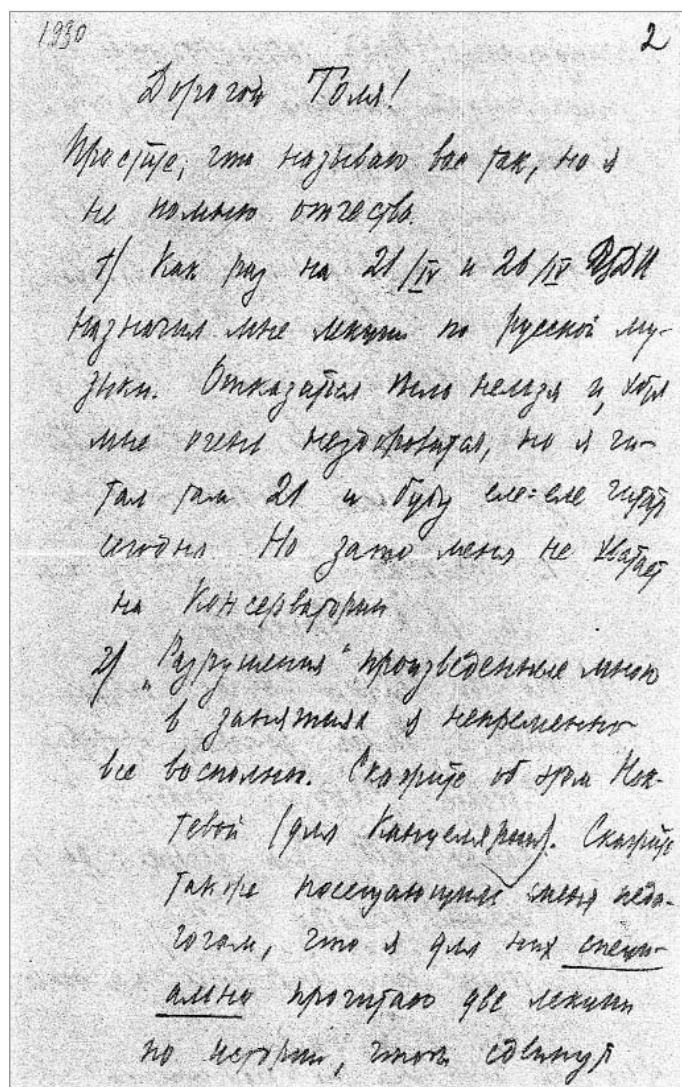 1930 2
Дорогой Толя!
Простите, что называю вас так, но я
не помню отчества.
1) Как раз на 21/IV и 26/IV ЦДИ
назначил мне лекции по русской му-
зыки. Отказаться было нельзя и, хотя
мне очень нездоровится, но я чи-
тал там 21 и буду еле=еле читать
сегодня. Но зато меня не хватает
на Консерваторию
2) „Разрушения" произведенные мною
в занятиях я непременно
все восполню. Скажите об этом
(для Канцелярии). Скажите
также посещающим меня педа-
гогам, что я для них специ-
ально прочитаю две лекции
по истории, чтобы сдвинуть